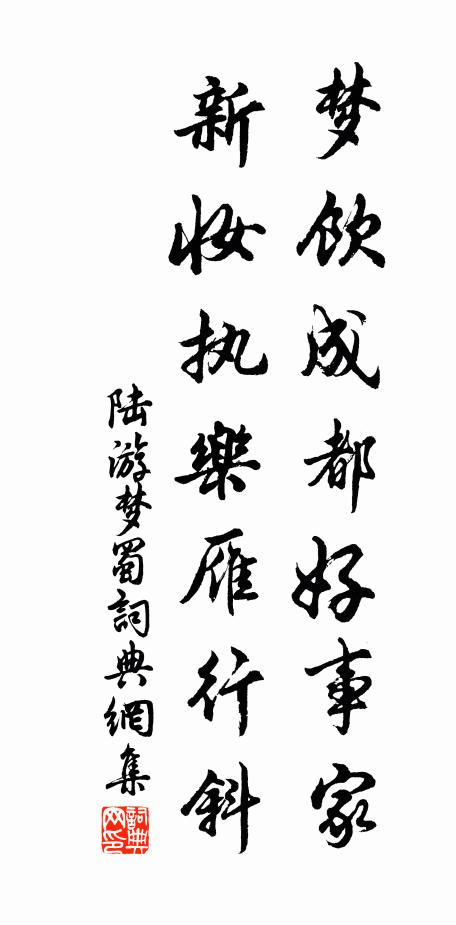 梦饮成都好事家
新妆执樂雁行斜
陆游梦蜀詞典網集
詞典网印